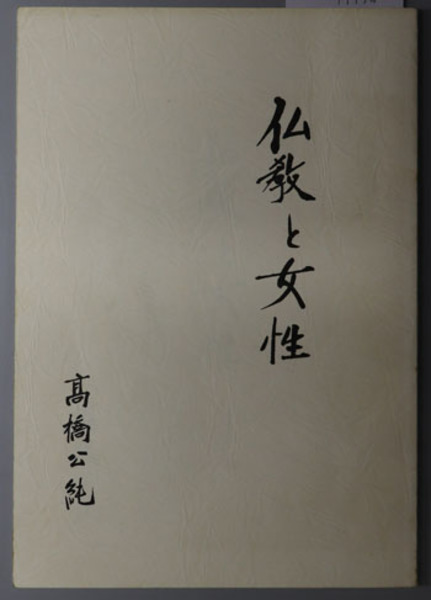 仏教と女性
髙橋公純